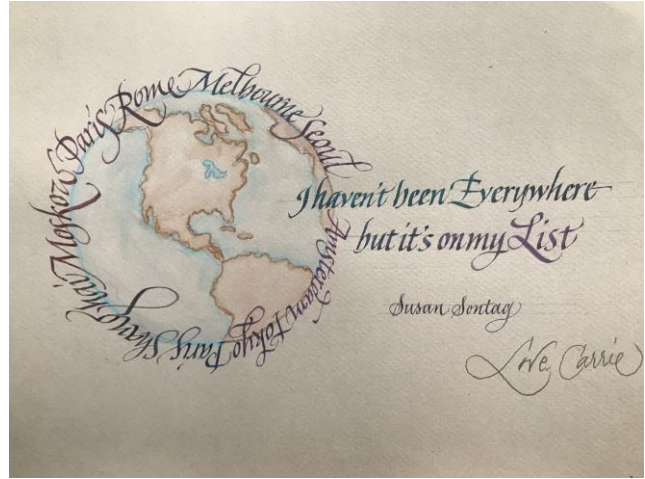 Paris Rome Melbourne Seoul Amsterdam Tokyo Paris Shanghai Moskow
I haven't been Everywhere
but it's on my List
Susan Sontag
Love, Carrie